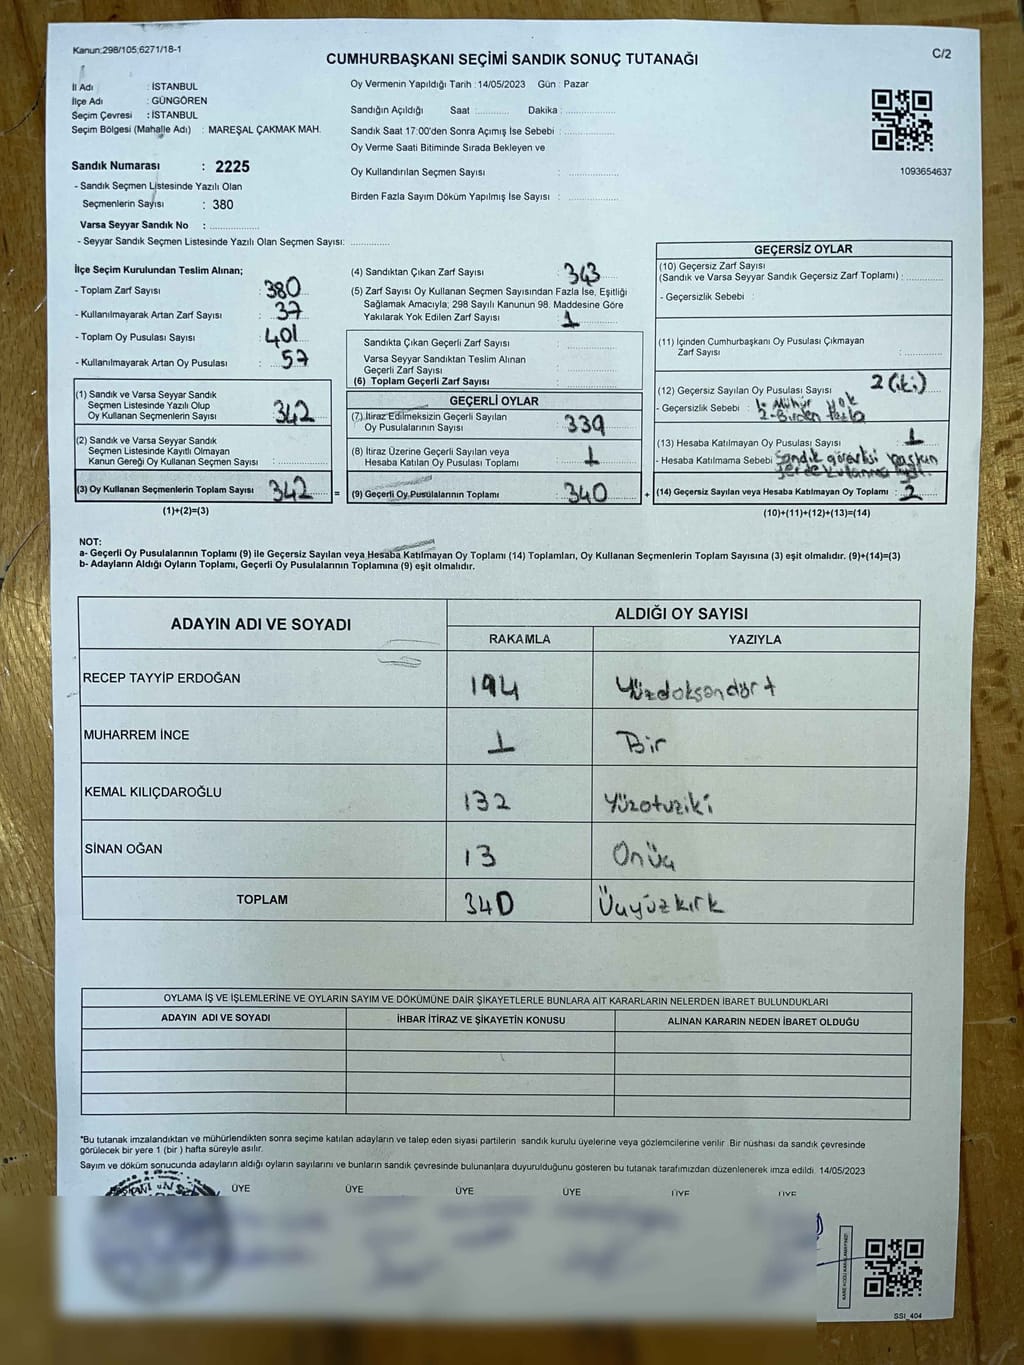 Kanun:298/105;6271/18-1
C/2
CUMHURBAŞKANI SEÇİMİ SANDIK SONUÇ TUTANAĞI
İl Adı : İSTANBUL
İlçe Adı : GÜNGÖREN
Seçim Çevresi : İSTANBUL
Seçim Bölgesi (Mahalle Adı) : MAREŞAL ÇAKMAK MAH.
Sandık Numarası : 2225
- Sandık Seçmen Listesinde Yazılı Olan
Seçmenlerin Sayısı : 380
Varsa Seyyar Sandık No :
- Seyyar Sandık Seçmen Listesinde Yazılı Olan Seçmen Sayısı:
Oy Vermenin Yapıldığı Tarih : 14/05/2023 Gün : Pazar
Sandığın Açıldığı Saat : Dakika :
Sandık Saat 17:00'den Sonra Açımış İse Sebebi :
Oy Verme Saati Bitiminde Sırada Bekleyen ve
Oy Kullandırılan Seçmen Sayısı :
Birden Fazla Sayım Döküm Yapılmış İse Sayısı :
1093654637
İlçe Seçim Kurulundan Teslim Alınan;
- Toplam Zarf Sayısı : 380
- Kullanılmayarak Artan Zarf Sayısı : 37
- Toplam Oy Pusulası Sayısı : 401
- Kullanılmayarak Artan Oy Pusulası : 57
(1) Sandık ve Varsa Seyyar Sandık
Seçmen Listesinde Yazılı Olup
Oy Kullanan Seçmenlerin Sayısı : 342
(2) Sandık ve Varsa Seyyar Sandık
Seçmen Listesinde Kayıtlı Olmayan
Kanun Gereği Oy Kullanan Seçmen Sayısı :
(3) Oy Kullanan Seçmenlerin Toplam Sayısı : 342
(1)+(2)=(3)
(4) Sandıktan Çıkan Zarf Sayısı : 343
(5) Zarf Sayısı Oy Kullanan Seçmen Sayısından Fazla İse, Eşitliği
Sağlamak Amacıyla; 298 Sayılı Kanunun 98. Maddesine Göre
Yakılarak Yok Edilen Zarf Sayısı : 1
Sandıkta Çıkan Geçerli Zarf Sayısı :
Varsa Seyyar Sandıktan Teslim Alınan
Geçerli Zarf Sayısı :
(6) Toplam Geçerli Zarf Sayısı :
GEÇERLİ OYLAR
(7) İtiraz Edilmeksizin Geçerli Sayılan
Oy Pusulalarının Sayısı : 339
(8) İtiraz Üzerine Geçerli Sayılan veya
Hesaba Katılan Oy Pusulası Toplamı : 1
= (9) Geçerli Oy Pusulalarının Toplamı : 340 +
GEÇERSİZ OYLAR
(10) Geçersiz Zarf Sayısı
(Sandık ve Varsa Seyyar Sandık Geçersiz Zarf Toplamı) :
- Geçersizlik Sebebi :
(11) İçinden Cumhurbaşkanı Oy Pusulası Çıkmayan
Zarf Sayısı :
(12) Geçersiz Sayılan Oy Pusulası Sayısı : 2 (iki)
- Geçersizlik Sebebi : 1- Mühür Yok
2- Birden fazla
(13) Hesaba Katılmayan Oy Pusulası Sayısı : 1
- Hesaba Katılmama Sebebi : Sandık görevlisi başkan
yerde kulanma
(14) Geçersiz Sayılan veya Hesaba Katılmayan Oy Toplamı : 2
(10)+(11)+(12)+(13)=(14)
NOT:
a- Geçerli Oy Pusulalarının Toplamı (9) ile Geçersiz Sayılan veya Hesaba Katılmayan Oy Toplamı (14) Toplamları, Oy Kullanan Seçmenlerin Toplam Sayısına (3) eşit olmalıdır. (9)+(14)=(3)
b- Adayların Aldığı Oyların Toplamı, Geçerli Oy Pusulalarının Toplamına (9) eşit olmalıdır.
ADAYIN ADI VE SOYADI
ALDIĞI OY SAYISI
RAKAMLA YAZIYLA
RECEP TAYYİP ERDOĞAN 194 Yüzdoksandört
MUHARREM İNCE 1 Bir
KEMAL KILIÇDAROĞLU 132 Yüzotuziki
SİNAN OĞAN 13 Onüç
TOPLAM 340 Üçyüzkırk
OYLAMA İŞ VE İŞLEMLERİNE VE OYLARIN SAYIM VE DÖKÜMÜNE DAİR ŞİKAYETLERLE BUNLARA AİT KARARLARIN NELERDEN İBARET BULUNDUKLARI
ADAYIN ADI VE SOYADI İHBAR İTİRAZ VE ŞİKAYETİN KONUSU ALINAN KARARIN NEDEN İBARET OLDUĞU
*Bu tutanak imzalandıktan ve mühürlendikten sonra seçime katılan adayların ve talep eden siyasi partilerin sandık kurulu üyelerine veya gözlemcilerine verilir. Bir nüshası da sandık çevresinde
görülecek bir yere 1 (bir) hafta süreyle asılır.
Sayım ve döküm sonucunda adayların aldığı oyların sayılarını ve bunların sandık çevresinde bulunanlara duyurulduğunu gösteren bu tutanak tarafımızdan düzenlenerek imza edildi. 14/05/2023
ÜYE ÜYE ÜYE ÜYE ÜYE ÜYE
SSI_404